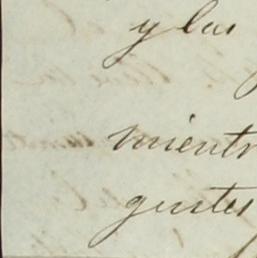 y las
mientr
gustes